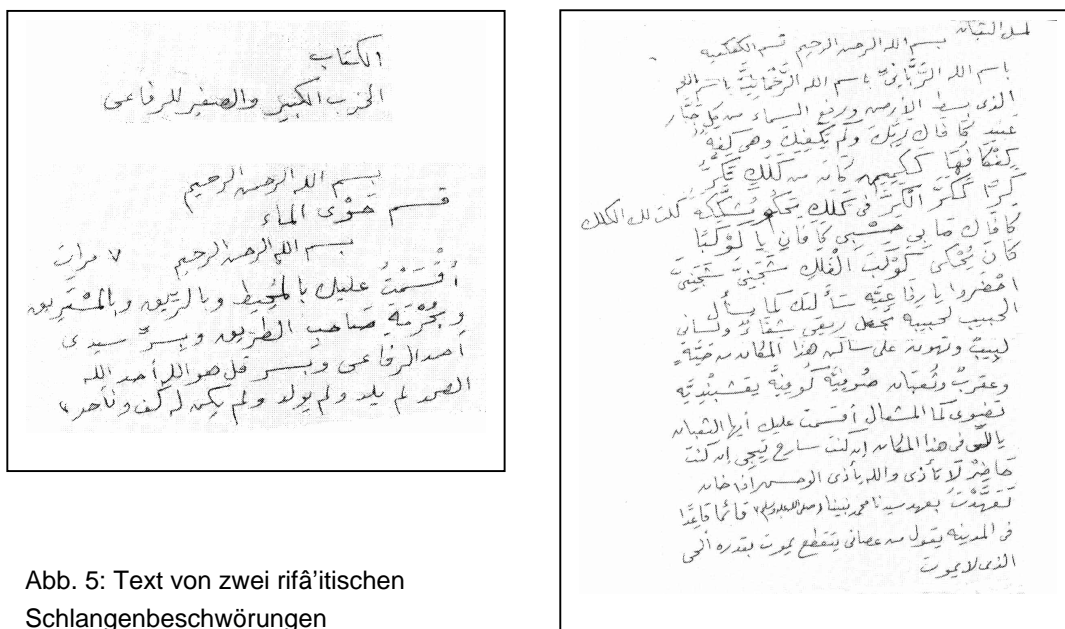 الكتاب
الحزب الكبير والصغير للرفاعى
بسم الله الرحمن الرحيم
قسم حَوْى الماء
بسم الله الرحمن الرحيم ٧ مرات
أَقْسَمْتُ عليك بالمُحِيط وبالرتيق وبالمشترِيون
وبحُرْمَةِ صَاحبِ الطريق وبِسرِّ سيدى
أحمد الرفاعى وبسر قل هو الله أحد الله
الصمد لم يلد ولم يولد ولم يكن له كفواً أحد
Abb. 5: Text von zwei rifâ'itischen
Schlangenbeschwörungen
لمسك الثعبان بسم الله الرحمن الرحيم قسم الكفكفيه
باسم الله الرَّبَّانِىّ باسم الله الرَّحْمَانِيَّ باسم الله
الذى بسط الأرض ورفع السماء من كل جَبَّار
عنيد كما قال رَبُّكَ وَكَم يَكْفِيكَ
كان من كَلَكِ
كَرًّا كَكَرِّ الْكَرِّ فى كَلَكٍ كلت لك الكلك
يَا كَوْكَبًا
كَانَ يُحْكَى الْفَلَكِ
احْضُروا يا رِفَاعِيَّه سَأَلتك كما يسأل
الحبيب لحبيبه تجعل ريقى شِفَاءٌ ولسانى
وتهونه على ساكن هذا المكان من حَيَّةٍ
وعقربٌ وثُعبَان
تضوى كما المشعال أقسمت عليك أيها الثعبان
ياللى فى هذا المكان إن كنت سارح تيجى إن كنت
حَاضِرٌ لَا تَأذى والله يأذى
بعهد سيدنا محمد نبينا صلى الله عليه وسلم قَائمًا قَاعِدًا
فى المدينه يقول من عصانى يتقطع يموت بقدره الحى
الذى لا يموت